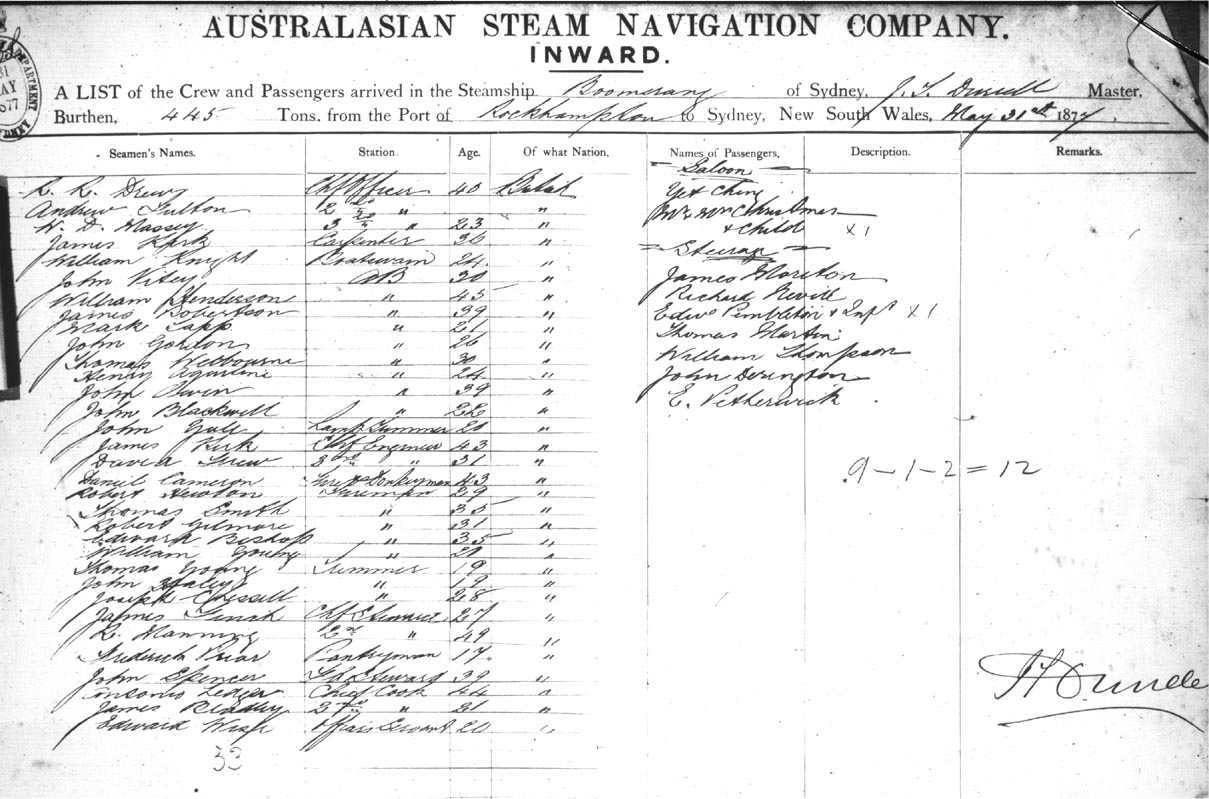 AUSTRALASIAN STEAM NAVIGATION COMPANY.
INWARD.
31 MAY 1877
A LIST of the Crew and Passengers arrived in the Steamship Boomerang of Sydney, Master,
Burthen, 445 Tons, from the Port of Rockhampton to Sydney, New South Wales, May 31st 1877.
Seamen's Names. Station. Age. Of what Nation. Names of Passengers, Description. Remarks.
Saloon
Drewy Chf Officer 40 British
Andrew Fulton 2nd "  "
W. D. Massey 3rd " 23 "
James Kirk Carpenter 36 "
William Knight Boatswain 24 "
John AB 30 "
William Henderson " 45 "
James Robertson " 39 "
Mark Tapp " 21 "
John Gordon " 26 "
Thomas Welbourne " 30 "
Henry " 24 "
John Owen " 39 "
John Blackwell " 22 "
John Gale Lamp Trimmer 20 "
James Kirk Chf Engineer 43 "
David Grew 3rd " 31 "
Daniel Cameron Donkeyman 43 "
Robert Newton Fireman 29 "
Thomas Smith " 35 "
Robert Gilmore " 31 "
Edward Bishop " 35 "
William Young " 20 "
Thomas Young Trimmer 19 "
John Haley " 19 "
Joseph Chessell " 28 "
James Finch Chf Steward 27 "
R. Manning 2nd " 49 "
Frederick Prior Pantryman 17 "
John Spencer Steward 39 "
Antonio Ledger Chief Cook 44 "
James Bradley 2nd " 21 "
Edward Wise Servant 20 "
33
Yet Ching
Mr & Mrs Christmas
& Child x 1
Steerage
James Moreton
Richard Nevill
Edwd Pembleton & Inft x 1
Thomas Martin
William Thompson
John Derington
E. Petherwick
9 - 1 - 2 = 12